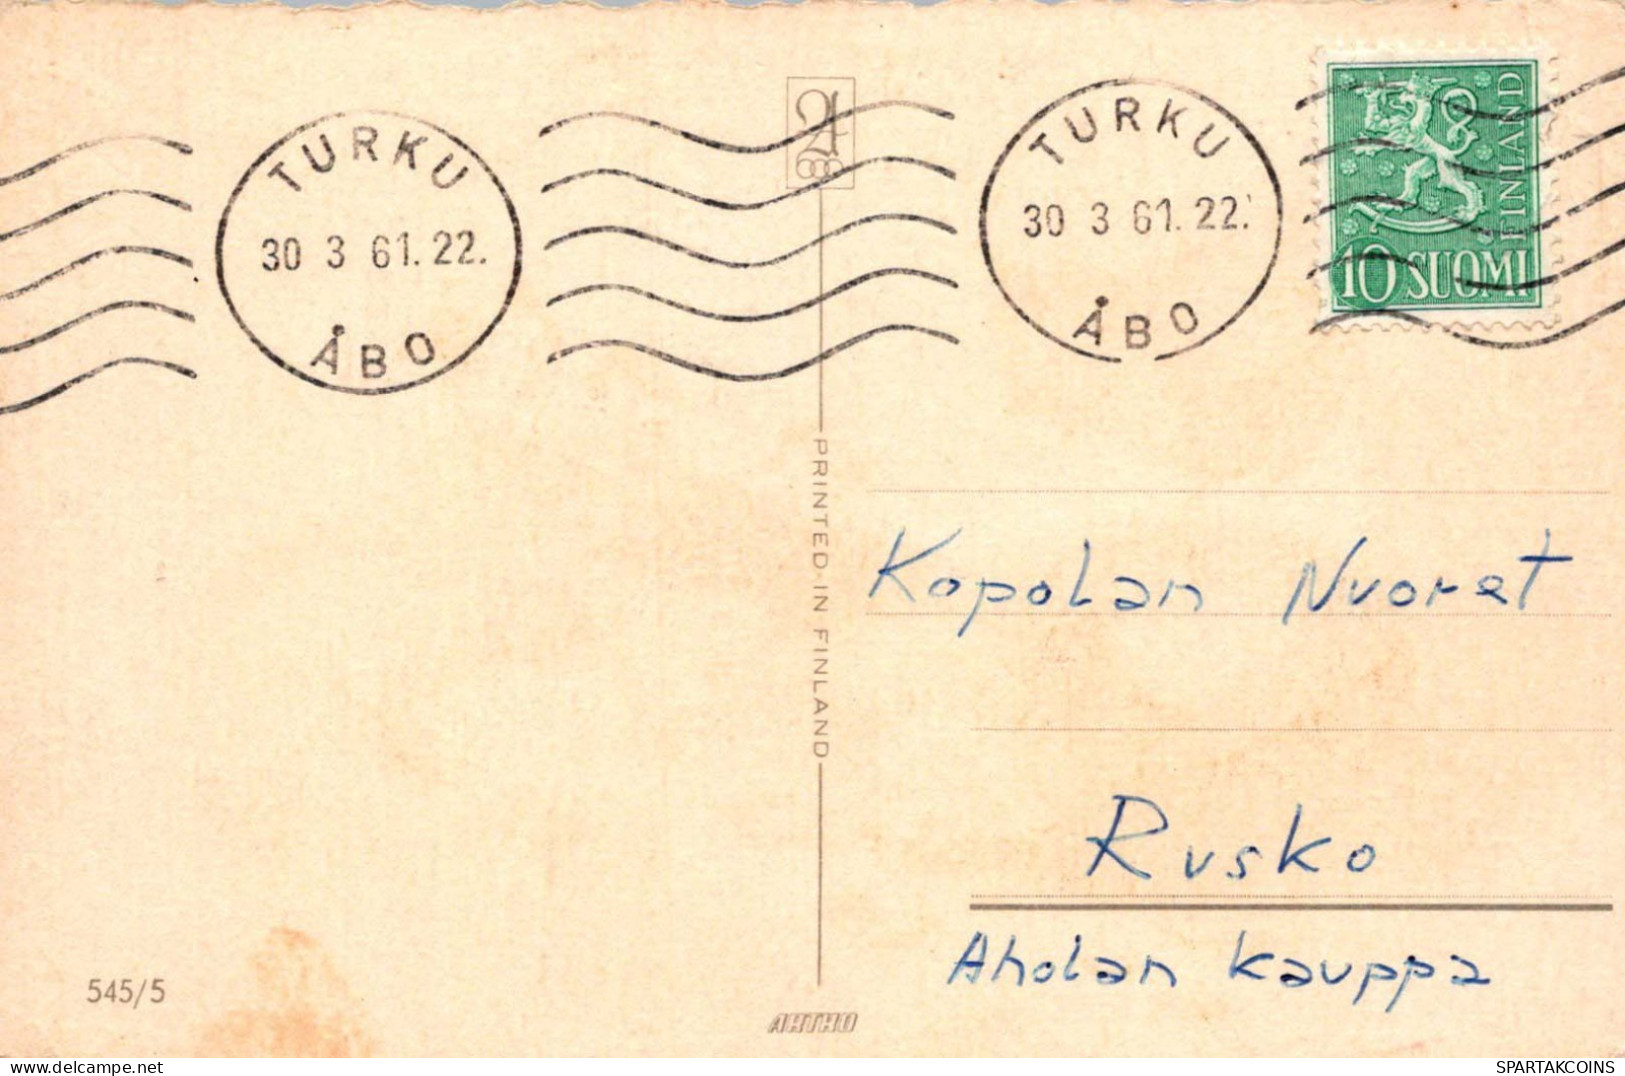 TURKU
30 3 61.22.
ÅBO
TURKU
30 3 61.22.
ÅBO
FINLAND
10 SUOMI
PRINTED IN FINLAND
Kopolan Nuoret
Rusko
Aholan kauppa
545/5
SPARTAKCOINS
delcampe.net